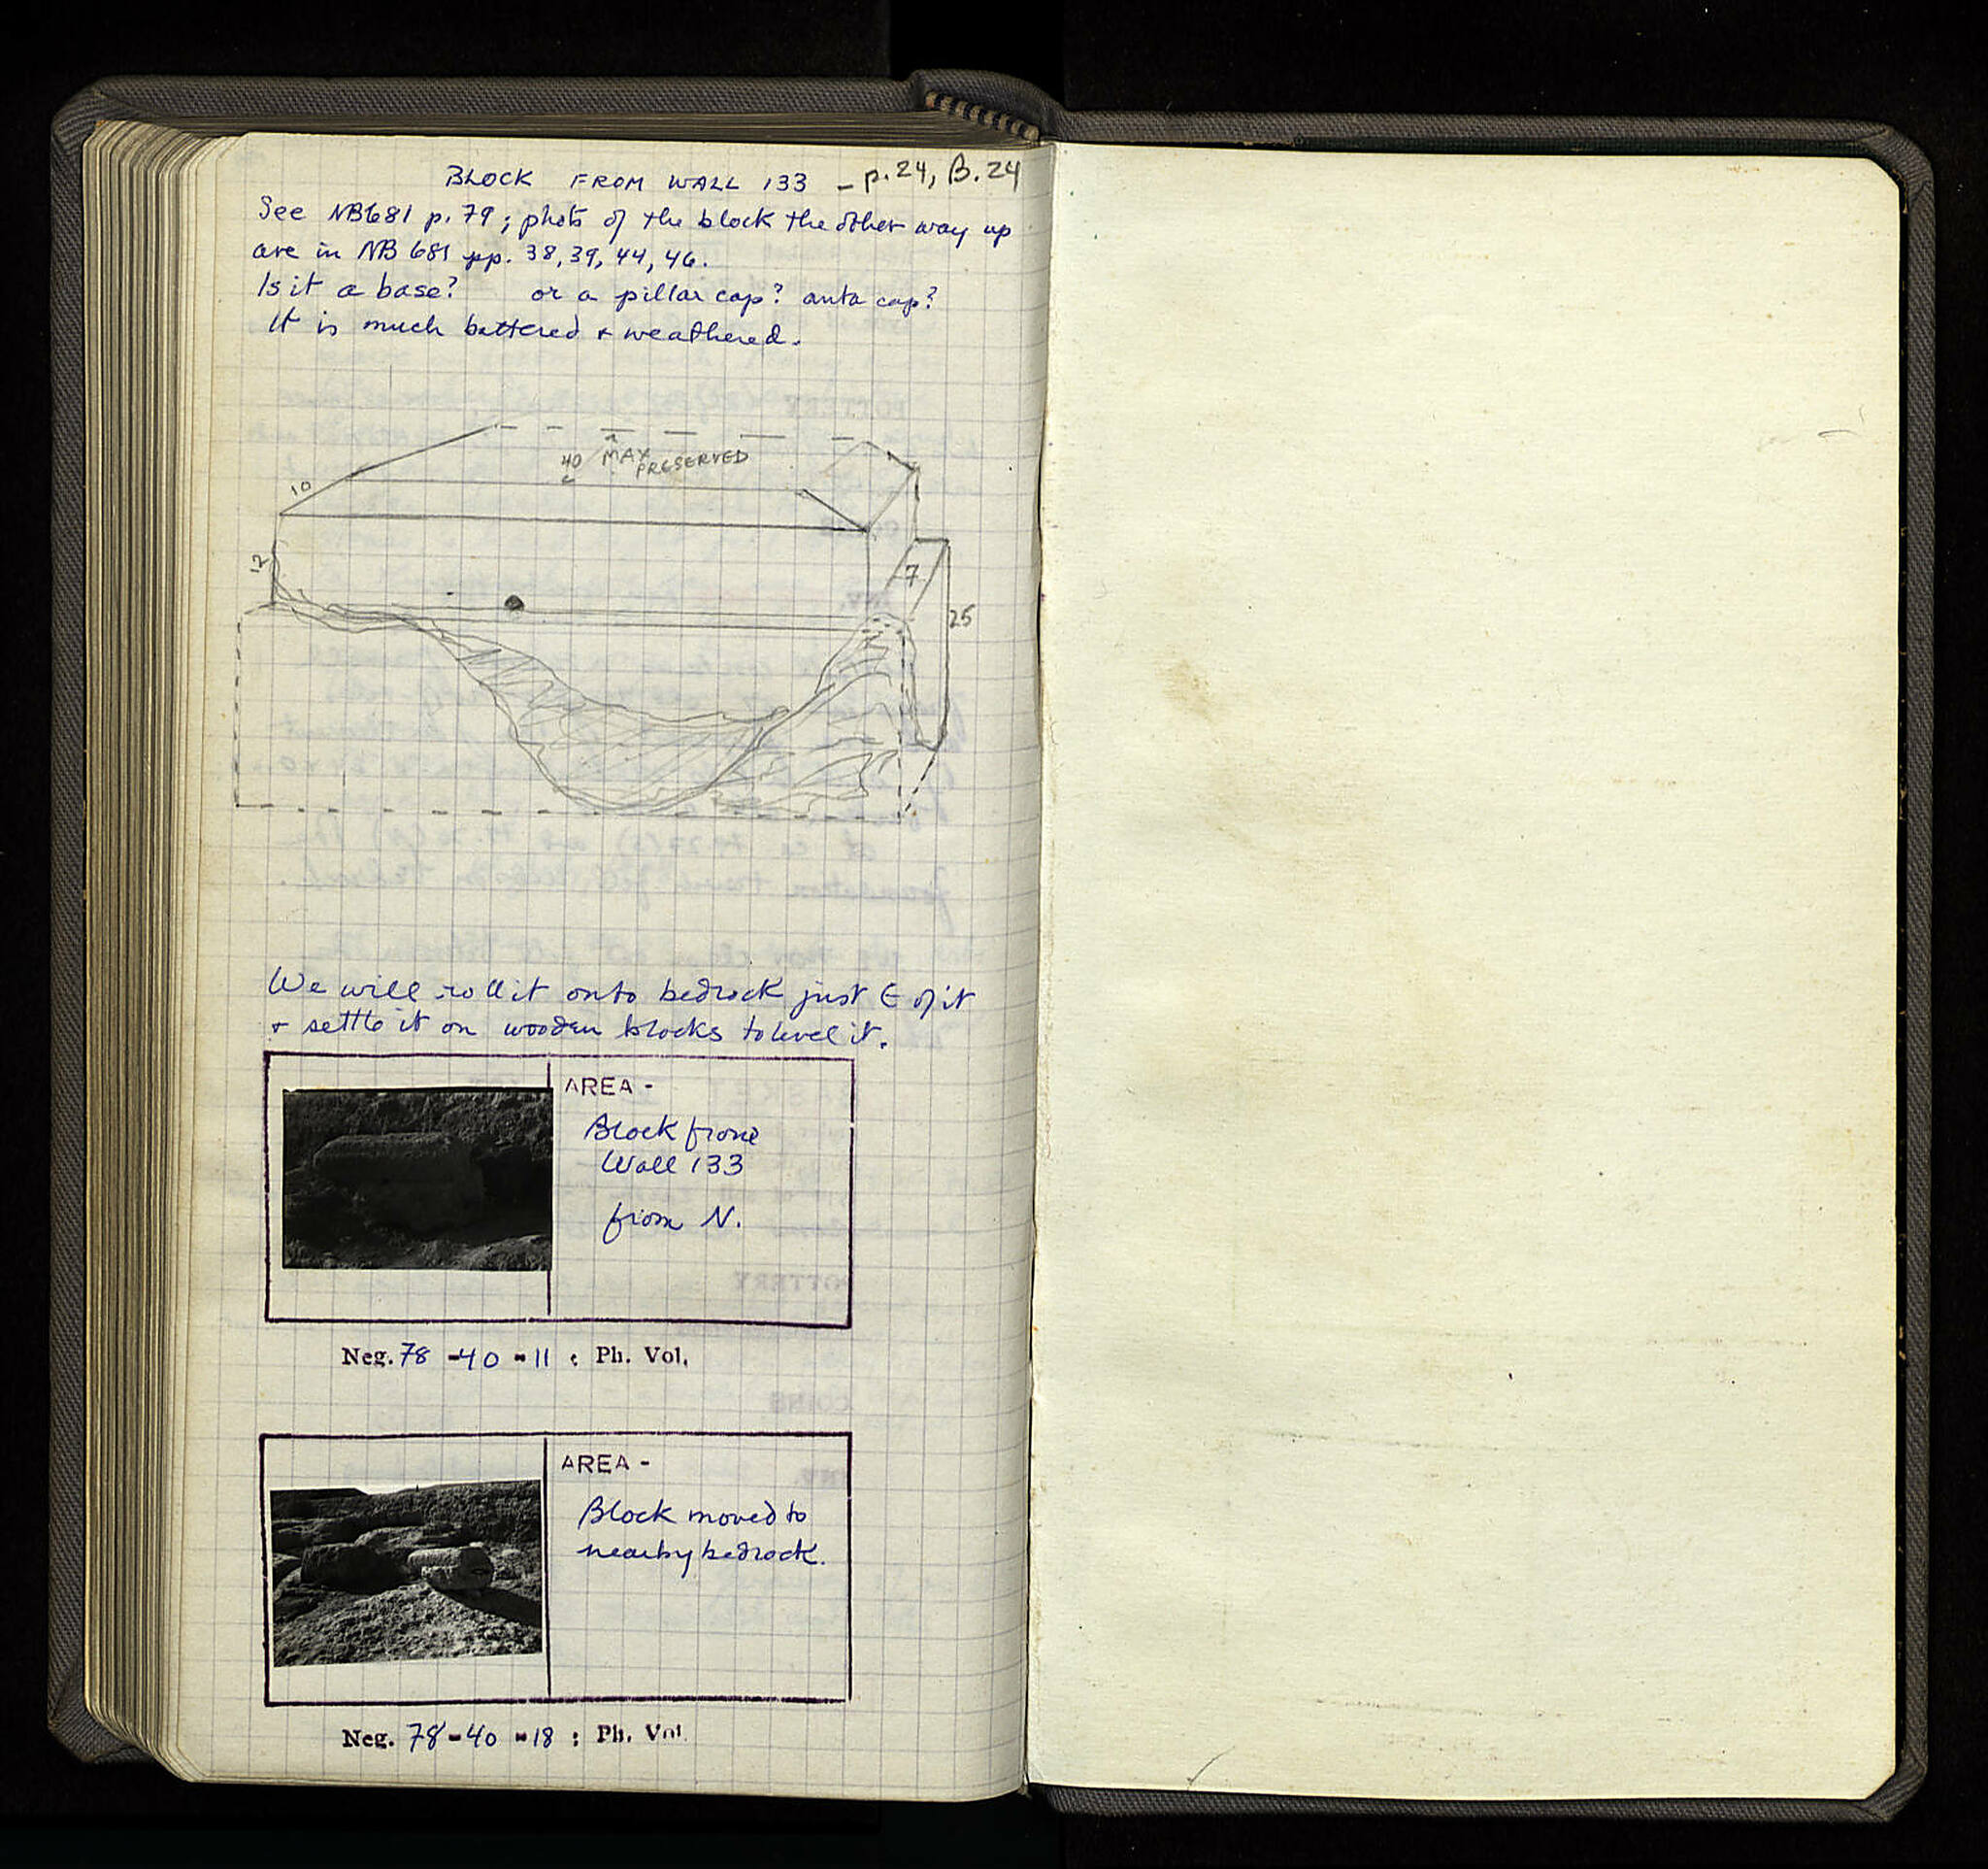 BLOCK FROM WALL 133 - p. 24, B. 24
See NB681 p. 79; photos of the block the other way up
are in NB 681 pp. 38, 39, 44, 46.
Is it a base? or a pillar cap? anta cap?
It is much battered + weathered.
40 MAX
PRESERVED
10
12
7
25
We will roll it onto bedrock just E of it
+ settle it on wooden blocks to level it.
AREA -
Block from
Wall 133
from N.
Neg. 78 - 40 - 11 ; Ph. Vol.
AREA -
Block moved to
nearby bedrock.
Neg. 78 - 40 - 18 ; Ph. Vol